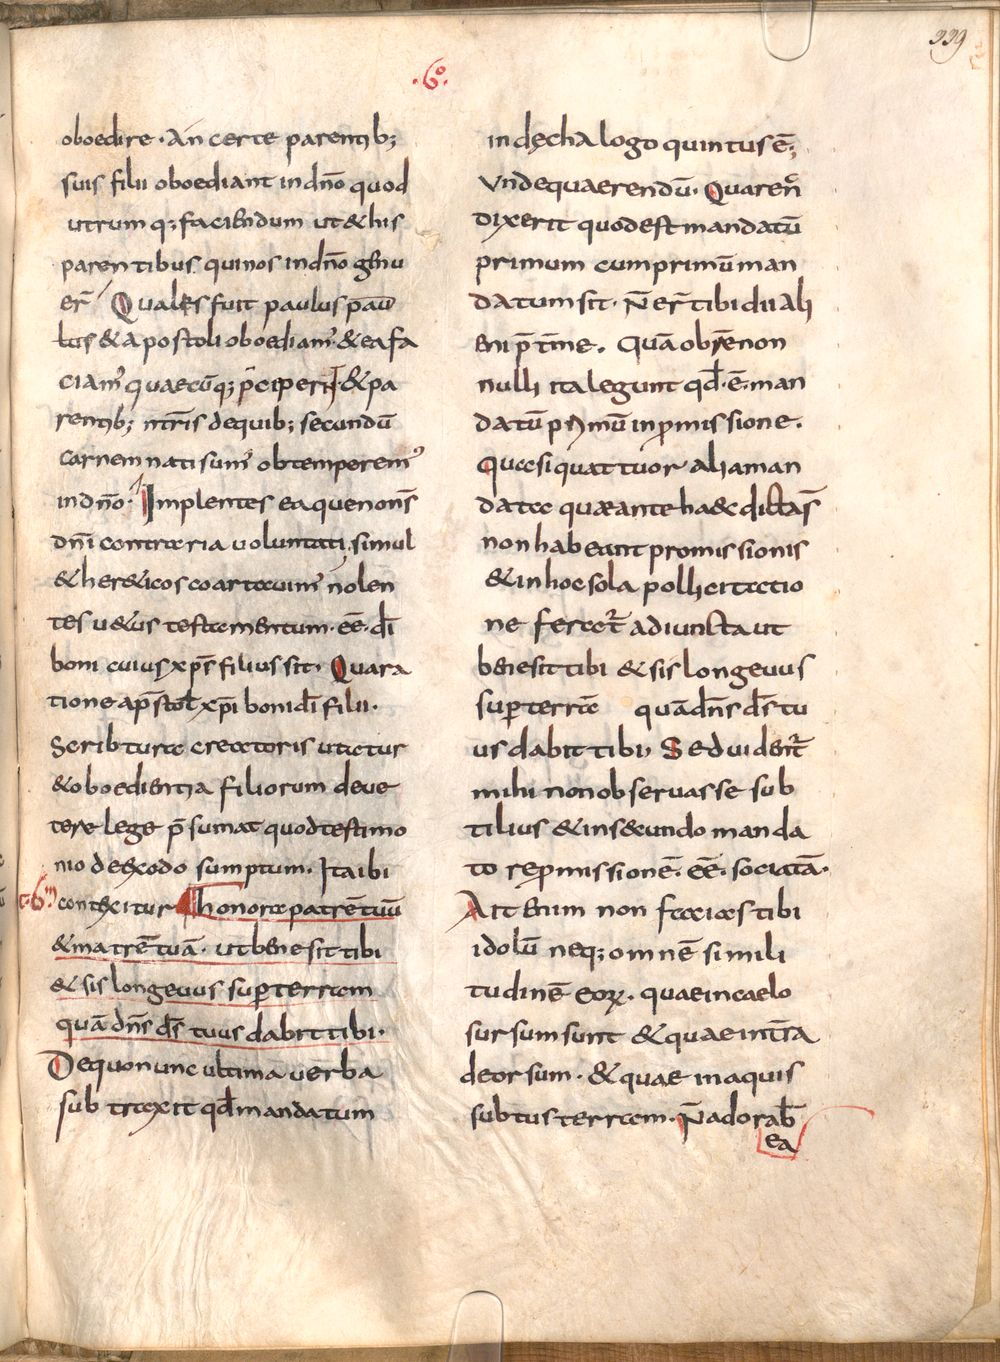 339
·6º·
oboedire · An certe parentib;
suis filii oboediant in dño quod
utrumq; faciendum ut & his
parentibus qui nos in dño genu
er̄ Quales fuit paulus pau
lus & apostoli oboediam᾿ & ea fa
ciam᾿ quaecūq; p̄ciper̄ · & pa
rentib; nr̄is de quib; secundū
carnem nati sum᾿ obtemperem᾿
in dño · Implentes ea que non s̄
dñi contraria voluntati · simul
& her&icos coartavim᾿ nolen
tes u&us testamentum · eē · dī
boni cuius xp̄s filius sit · Qua ra
tione ap̄stoli xp̄i boni dī filii ·
Scribturæ creatoris utatur
& oboedientia filiorum de ve
tere lege p̄sumat quod testimo
nio de exodo sumptum · Ita ibi
·6· contexitur honora patrē tuū
& matrē tuā · ut bene sit tibi
& sis longeuus super terram
quā dn̄s ds̄ tuus dabit tibi ·
De quo nunc ultima verba
subtraxit qđ mandatum
in dechalogo quintus ē;
Unde quaerendū · Quare n̄c
dixerit quod est mandatū
primum cum primū man
datum sit · N̄ er̄ tibi dii ali
eni p̄t̄ me · Quā ob rē non
nulli ita legunt qđ · ē · man
datū primū in promissione ·
Quasi quattuor alia man
data quæ ante haec dicta s̄
non habeant promissionis
& in hoc sola pollicitatio
ne fer̄ adiuncta ut
bene sit tibi & sis longeuus
super terra quā dn̄s ds̄ tu
us dabit tibi · Sed videnť
mihi non observasse sub
tilius & in secundo manda
to repromissionē · eē · sociatā ·
Ait enim non facias tibi
idolū neq; omnē simili
tudinē eorꝝ · quae in caelo
sursum sunt & quae in tr̄a
deorsum · & quae in aquis
subtus terram · N̄ adorab̄
ea